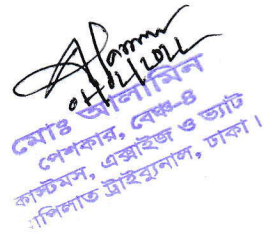 ০৮/১২/২০২২
মোঃ আলামিন
পেশকার, বেঞ্চ-৪
কাস্টমস, এক্সাইজ ও ভ্যাট
আপিলাত ট্রাইব্যুনাল, ঢাকা।